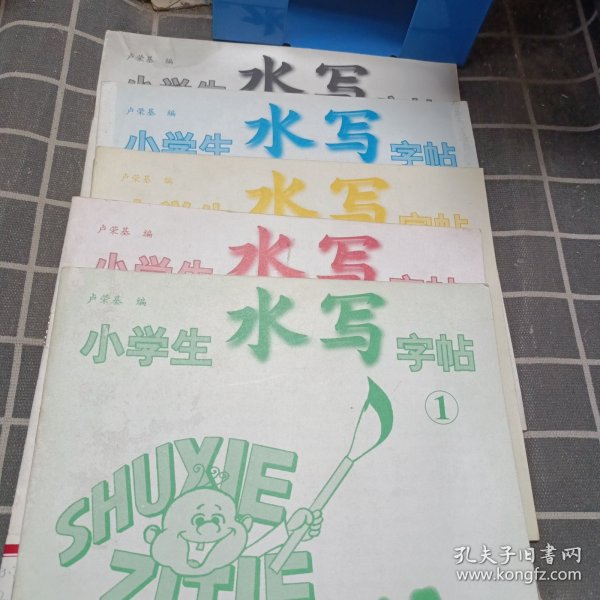 卢荣基 编
小学生 水写
卢荣基 编
小学生 水写 字帖
卢荣基 编
水写 字帖
卢荣基 编
小学生 水写 字帖
卢荣基 编
小学生 水写 字帖
①
SHUXIE
ZITIE
孔夫子旧书网
www.kongfz.com